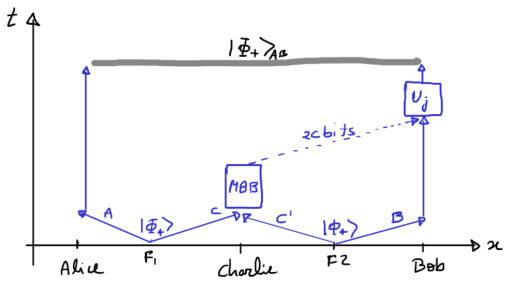 t
|Φ₊⟩_AB
U_j
2cbits
MBB
A |Φ₊⟩ C C' |Φ₊⟩ B
x
Alice F₁ Charlie F2 Bob